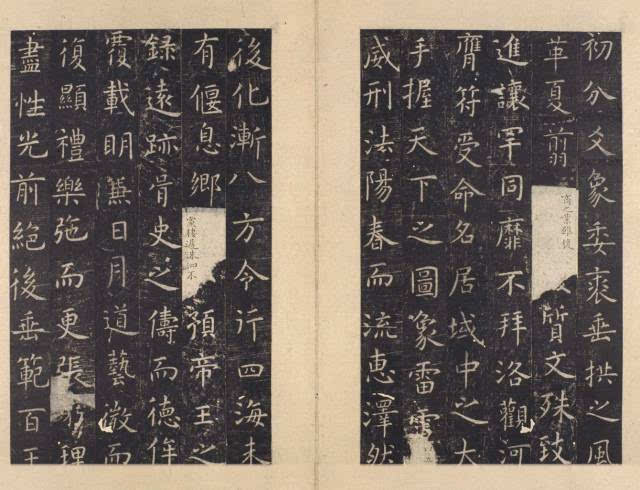 初分爻象委裘垂拱之風
革夏翦商之業雖復質文殊致
進讓罕同靡不拜洛觀河
膺符受命名居域中之大
手握天下之圖象雷
威刑法陽春而流惠澤然
後化漸八方令行四海未
有偃息鄉黨棲遲洙泗不預帝王之
錄遠跡胥史之儔而德侔
覆載明兼日月道藝微而
復顯禮樂弛而更張窮理
盡性光前絕後垂範百王